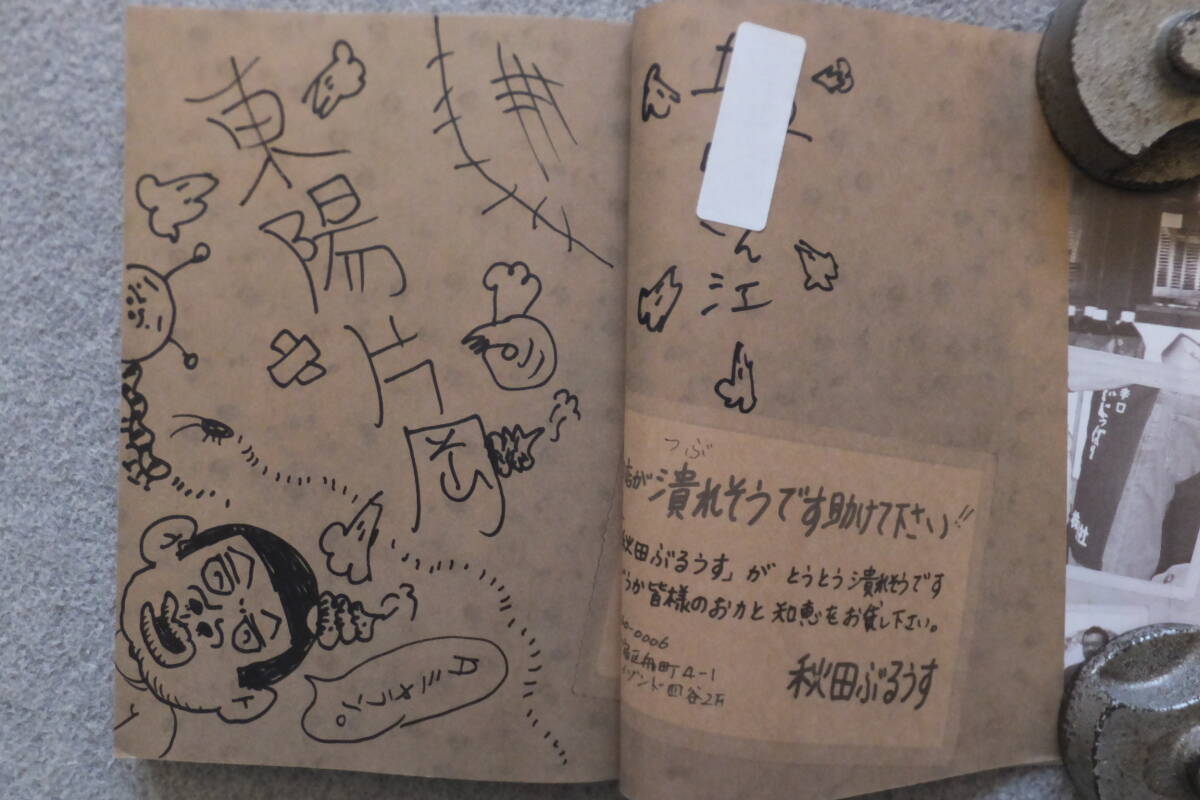 東陽片岡
ん江
つぶ
店が潰れそうです助けて下さい!!
秋田ぶるうす」が とうとう潰れそうです
うか皆様のお力と知恵をお貸し下さい。
0-0006
区舟町4-1
ゾンド四谷2F
秋田ぶるうす